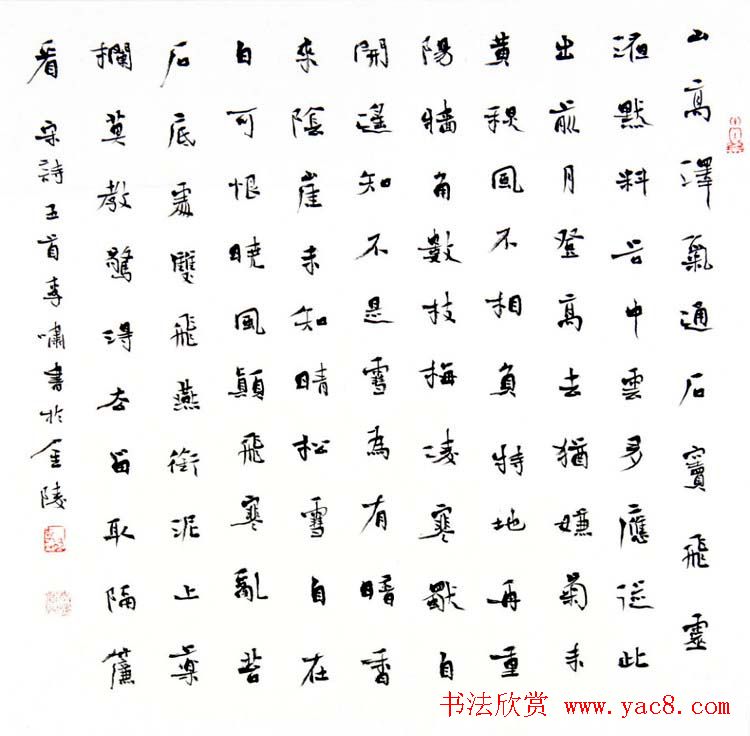 山高澤氣通石竇飛靈
液默料谷中雲多應從此
出前月登高去猶嫌菊未
黄秋風不相負特地再重
陽牆角數枝梅凌寒獨自
開遥知不是雪為有暗香
來陰崖未知晴松雪自在
白可恨曉風顛飛寒亂苔
石底處雙飛燕銜泥上藥
欄莫教驚得去留取隔簾
看 宋詩五首李嘯書於金陵
书法欣赏 www.yac8.com